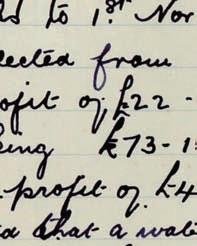 to 1st Nov
lected from
ofit of £22 -
eing £73-1
profit of £4
d that a wate